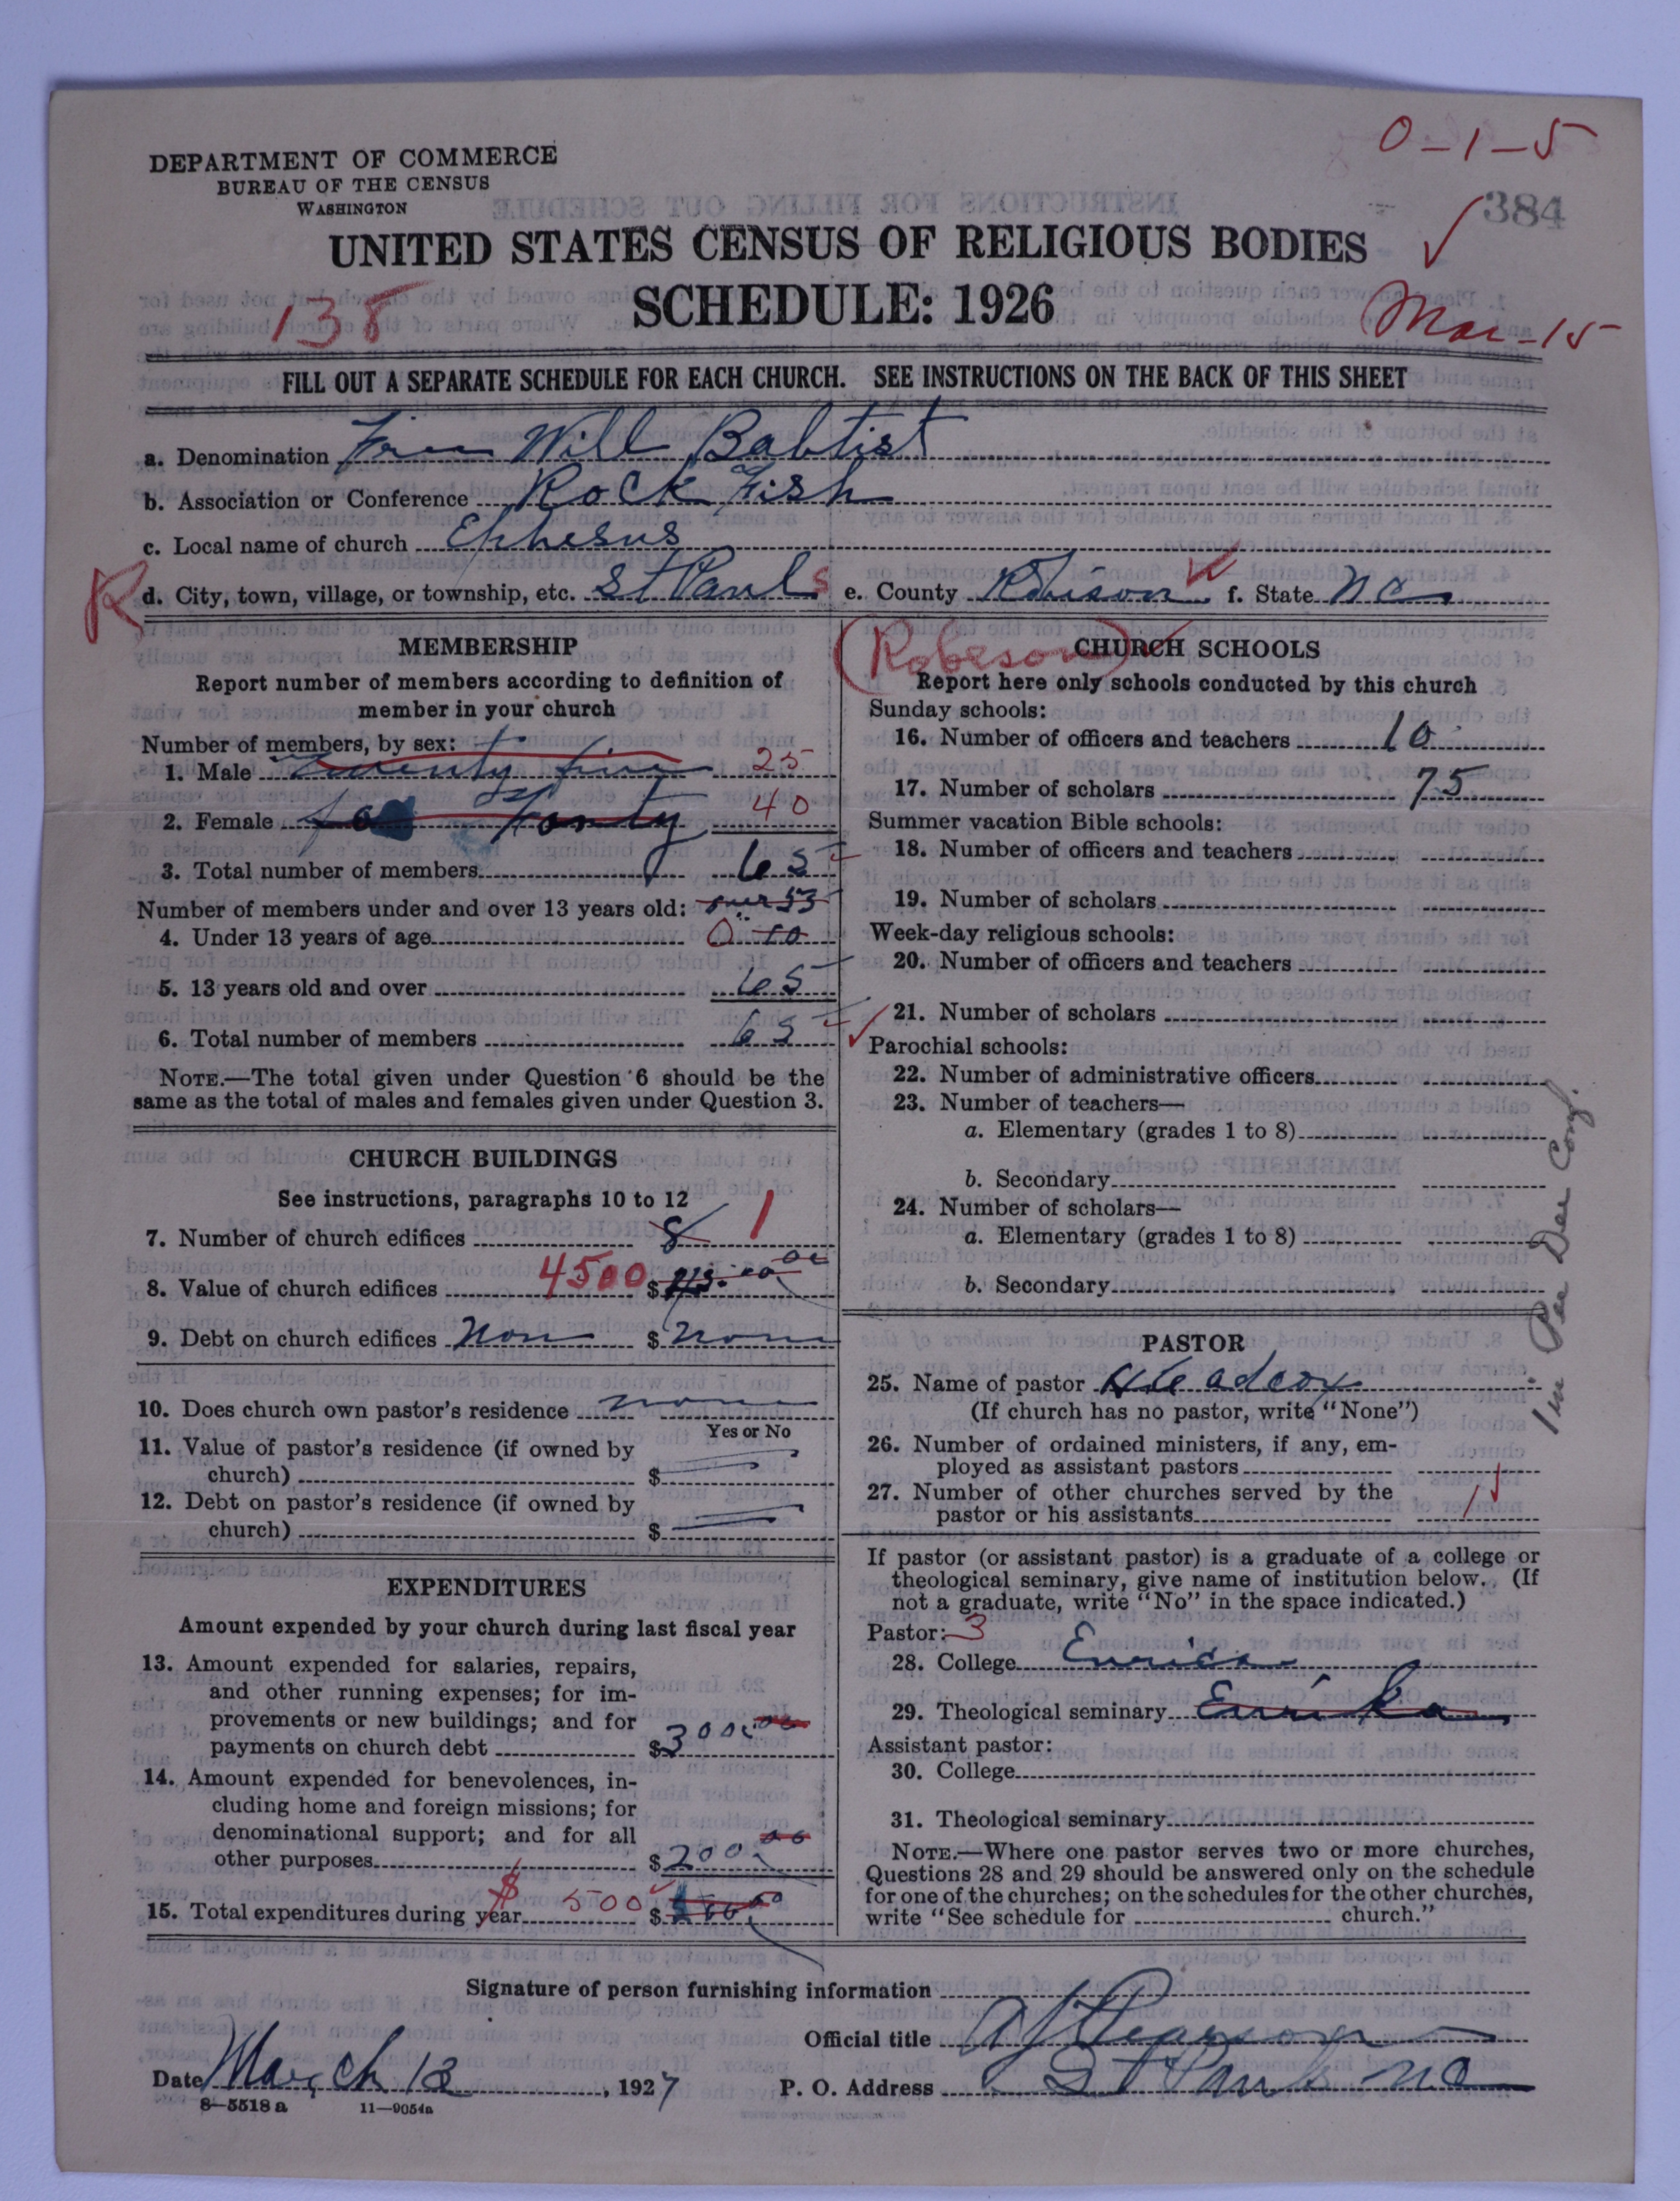 0-1-5
DEPARTMENT OF COMMERCE
BUREAU OF THE CENSUS
WASHINGTON
384
UNITED STATES CENSUS OF RELIGIOUS BODIES
SCHEDULE: 1926
138
Mar-15
FILL OUT A SEPARATE SCHEDULE FOR EACH CHURCH. SEE INSTRUCTIONS ON THE BACK OF THIS SHEET
a. Denomination Free Will Babtist
b. Association or Conference Rock Fish
c. Local name of church Ephesus
R d. City, town, village, or township, etc. St Pauls e. County Robison f. State NC
MEMBERSHIP
Report number of members according to definition of
member in your church
Number of members, by sex:
1. Male twenty five 25
2. Female Forty 40
3. Total number of members 65
Number of members under and over 13 years old: over 55
4. Under 13 years of age 0 10
5. 13 years old and over 65
6. Total number of members 65
NOTE.—The total given under Question 6 should be the
same as the total of males and females given under Question 3.
CHURCH BUILDINGS
See instructions, paragraphs 10 to 12
7. Number of church edifices 1
8. Value of church edifices 4500 $
9. Debt on church edifices Non $ none
10. Does church own pastor's residence none
Yes or No
11. Value of pastor's residence (if owned by
church) $
12. Debt on pastor's residence (if owned by
church) $
EXPENDITURES
Amount expended by your church during last fiscal year
13. Amount expended for salaries, repairs,
and other running expenses; for im-
provements or new buildings; and for
payments on church debt $300.00
14. Amount expended for benevolences, in-
cluding home and foreign missions; for
denominational support; and for all
other purposes $200.00
15. Total expenditures during year $ 500 $
(Robeson)
CHURCH SCHOOLS
Report here only schools conducted by this church
Sunday schools:
16. Number of officers and teachers 10
17. Number of scholars 75
Summer vacation Bible schools:
18. Number of officers and teachers
19. Number of scholars
Week-day religious schools:
20. Number of officers and teachers
21. Number of scholars
Parochial schools:
22. Number of administrative officers
23. Number of teachers—
a. Elementary (grades 1 to 8)
b. Secondary
24. Number of scholars—
a. Elementary (grades 1 to 8)
b. Secondary
1 in Pee Dee Conf.
PASTOR
25. Name of pastor
(If church has no pastor, write "None")
26. Number of ordained ministers, if any, em-
ployed as assistant pastors
27. Number of other churches served by the
pastor or his assistants 1
If pastor (or assistant pastor) is a graduate of a college or
theological seminary, give name of institution below. (If
not a graduate, write "No" in the space indicated.)
Pastor: 3
28. College
29. Theological seminary
Assistant pastor:
30. College
31. Theological seminary
NOTE.—Where one pastor serves two or more churches,
Questions 28 and 29 should be answered only on the schedule
for one of the churches; on the schedules for the other churches,
write "See schedule for church."
Signature of person furnishing information
Official title
Date March 12, 1927 P. O. Address St Pauls NC
8—5518 a 11—9054a